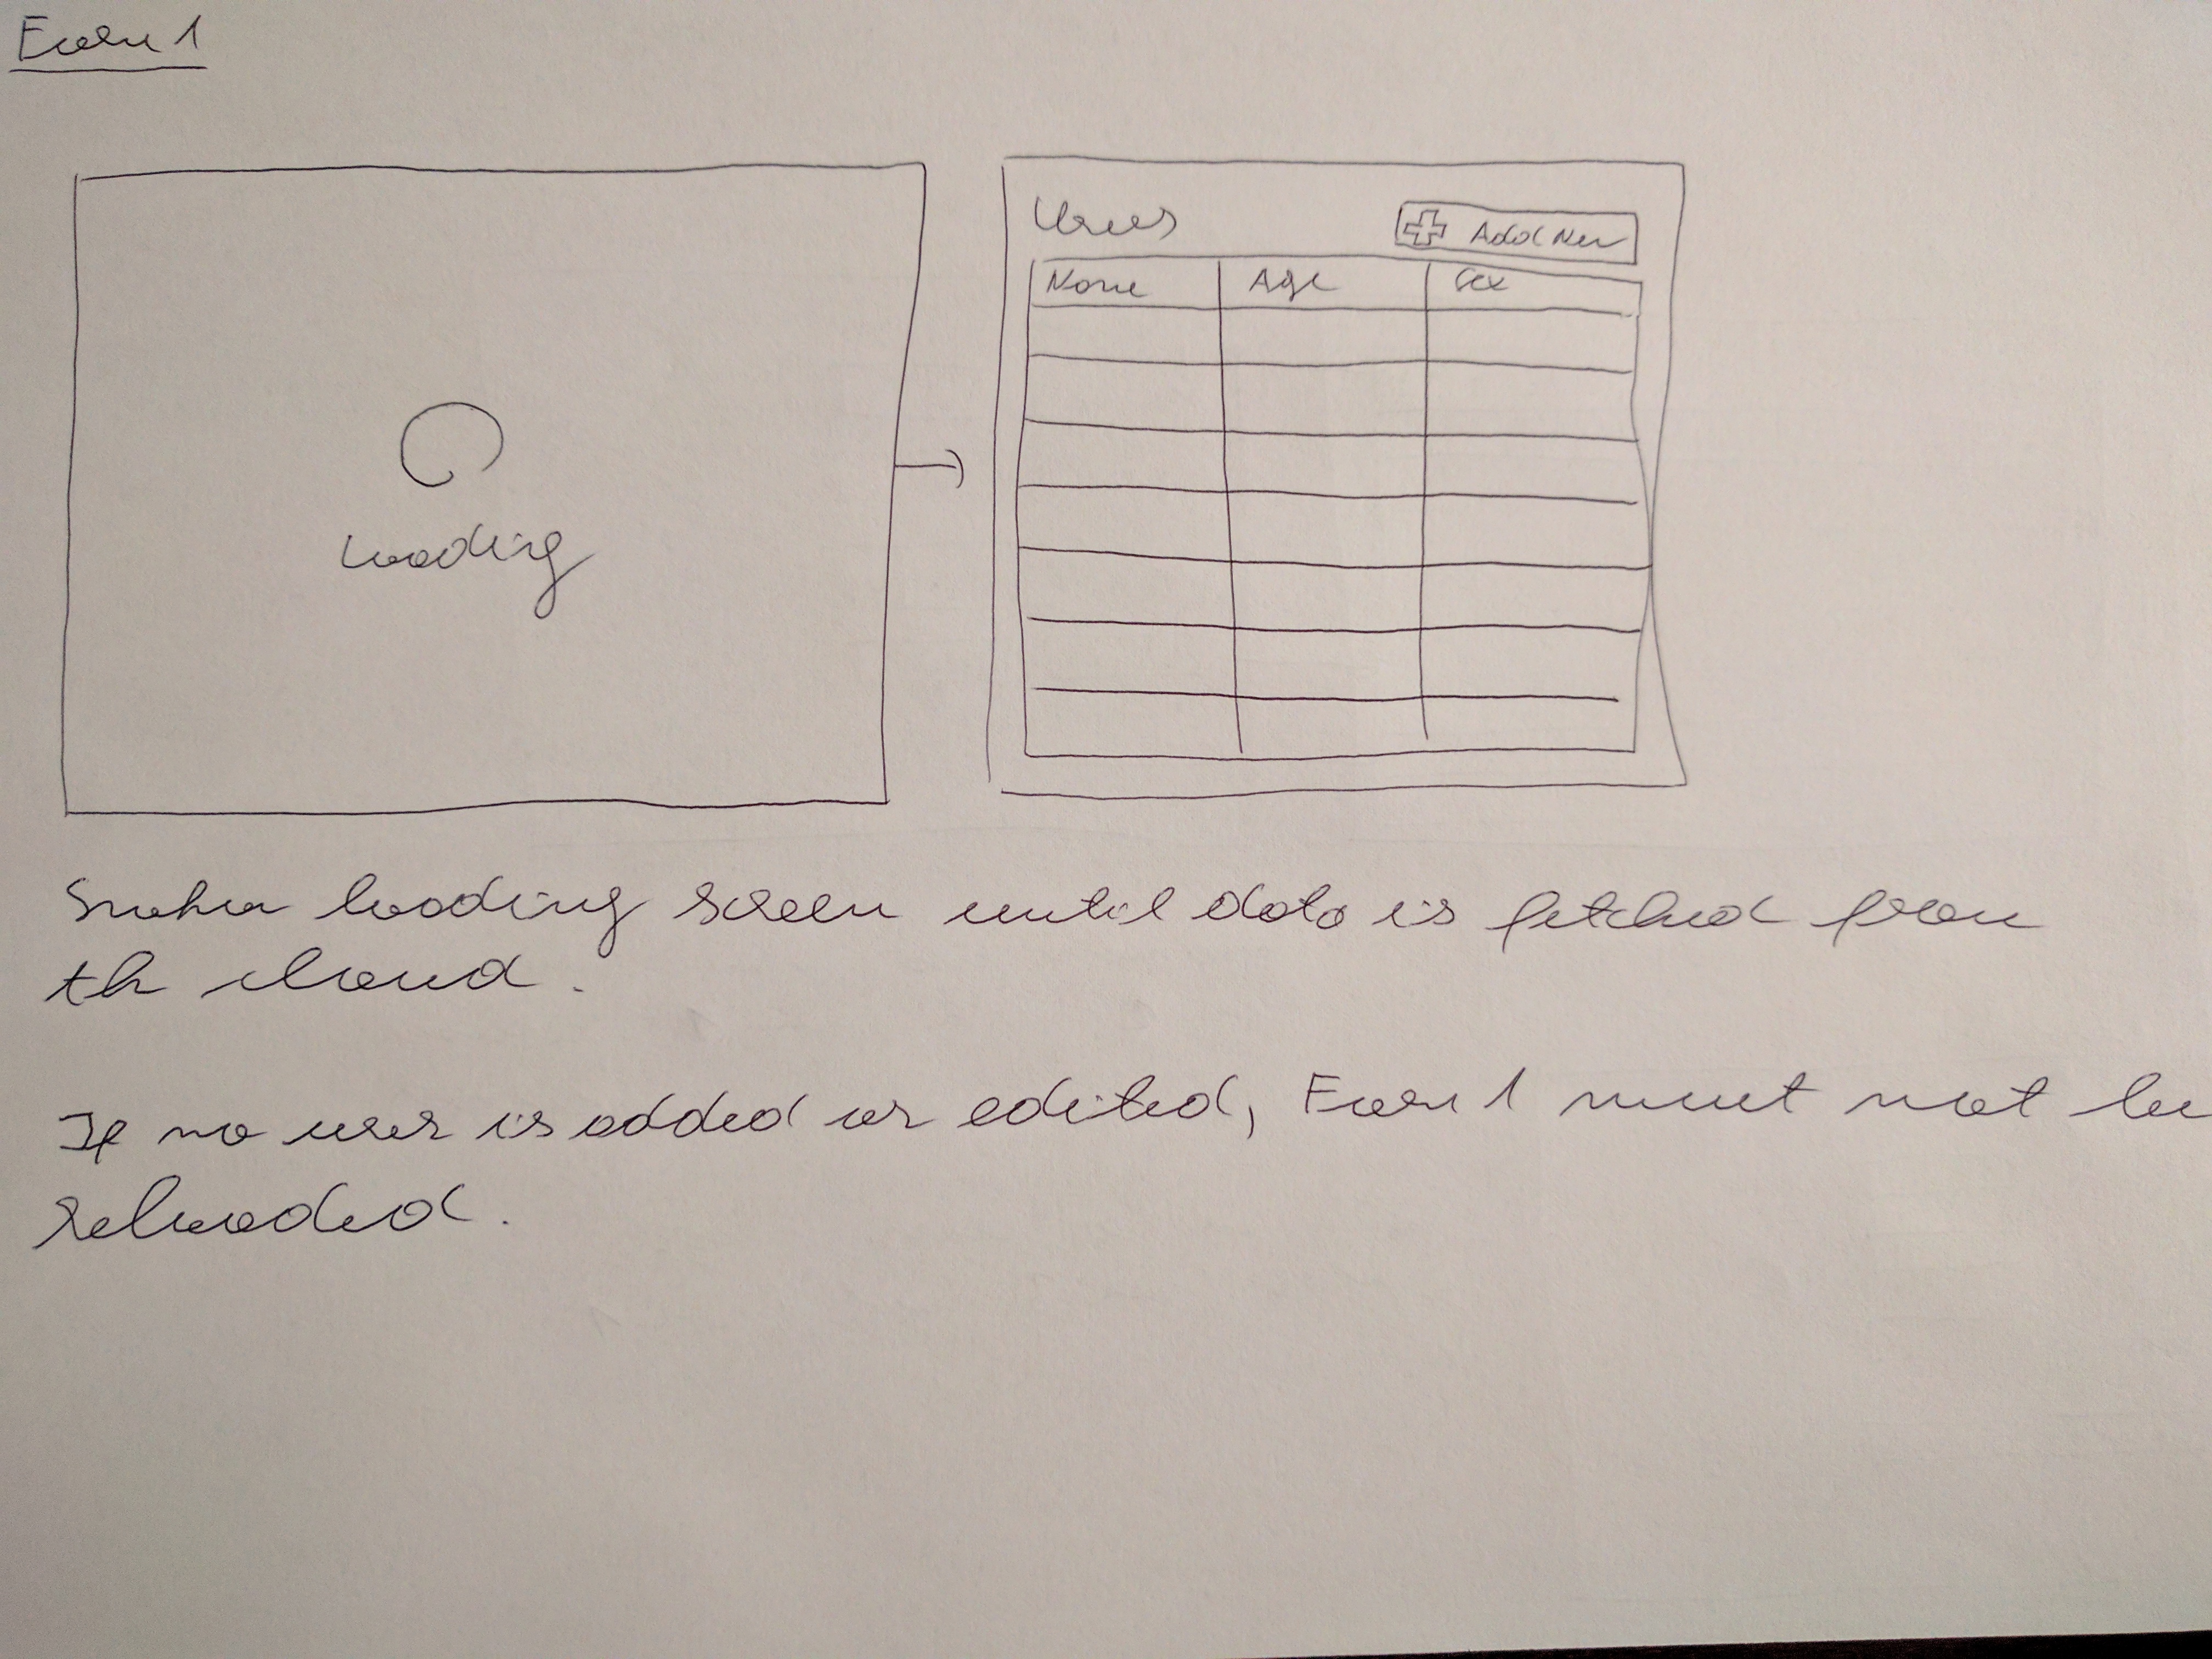 Form 1
Users
Add New
Name Age Sex
Loading
loading screen until data is fetched from
th cloud.
If no user is added or edited, Form 1 must not be
reloaded.